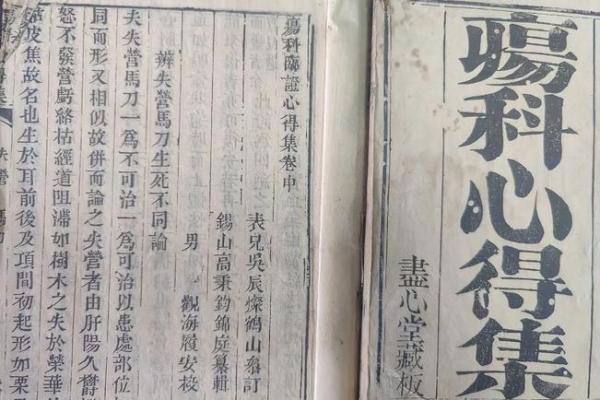 瘍科心得集
盡心堂藏板
瘍科臨證心得集卷中
表兄吳辰燦鶴山叅訂
錫山高秉鈞錦庭纂輯
男 觀海履安校
辨失營馬刀生死不同論
夫失營馬刀一為不可治一為可治以患處部位
同而形又相似故併而論之失營者由肝陽久欝
怒不發營虧絡枯經道阻滯如樹木之失於榮華
皮焦故名也生於耳前後及項間初起形如栗
集 失營